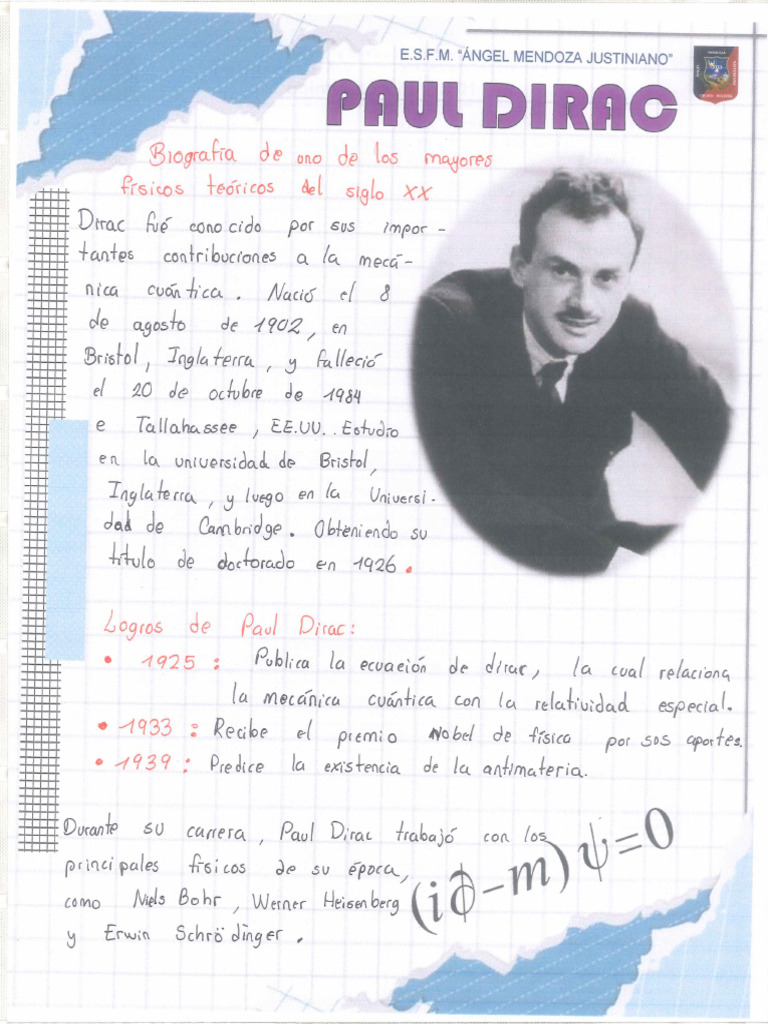 E.S.F.M. "ÁNGEL MENDOZA JUSTINIANO"
PAUL DIRAC
Biografía de uno de los mayores
físicos teóricos del siglo XX
Dirac fué conocido por sus impor-
tantes contribuciones a la mecá-
nica cuántica. Nació el 8
de agosto de 1902, en
Bristol, Inglaterra, y falleció
el 20 de octubre de 1984
e Tallahassee, EE.UU.. Estudio
en la universidad de Bristol,
Inglaterra, y luego en la Universi-
dad de Cambridge. Obteniendo su
título de doctorado en 1926.
Logros de Paul Dirac:
• 1925: Publica la ecuación de dirac, la cual relaciona
la mecánica cuántica con la relatividad especial.
• 1933: Recibe el premio Nobel de física por sos aportes.
• 1939: Predice la existencia de la antimateria.
Durante su carrera, Paul Dirac trabajó con los
principales físicos de su época,
como Niels Bohr, Werner Heisenberg
y Erwin Schrödinger.
(i∂̸-m)ψ=0